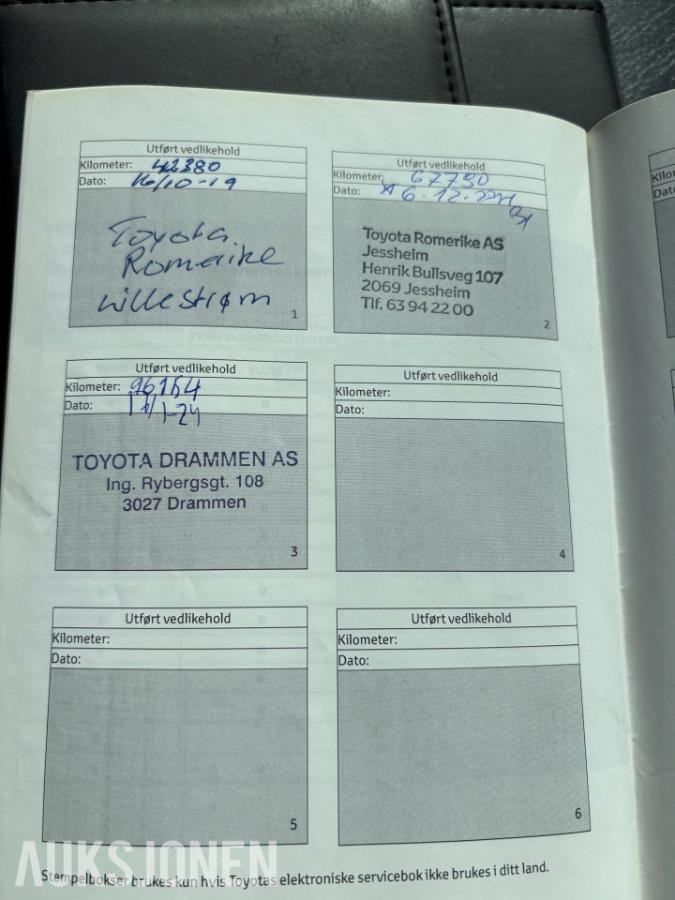 Utført vedlikehold
Kilometer: 42380
Dato: 16/10-19
Toyota
Romerike
Lillestrøm
1
Utført vedlikehold
Kilometer: 67790
Dato:
Toyota Romerike AS
Jessheim
Henrik Bullsveg 107
2069 Jessheim
Tlf. 63 94 22 00
2
Utført vedlikehold
Kilometer: 96164
Dato:
TOYOTA DRAMMEN AS
Ing. Rybergsgt. 108
3027 Drammen
3
Utført vedlikehold
Kilometer:
Dato:
4
Utført vedlikehold
Kilometer:
Dato:
5
Utført vedlikehold
Kilometer:
Dato:
6
Stempelbokser brukes kun hvis Toyotas elektroniske servicebok ikke brukes i ditt land.
AUKSJONEN